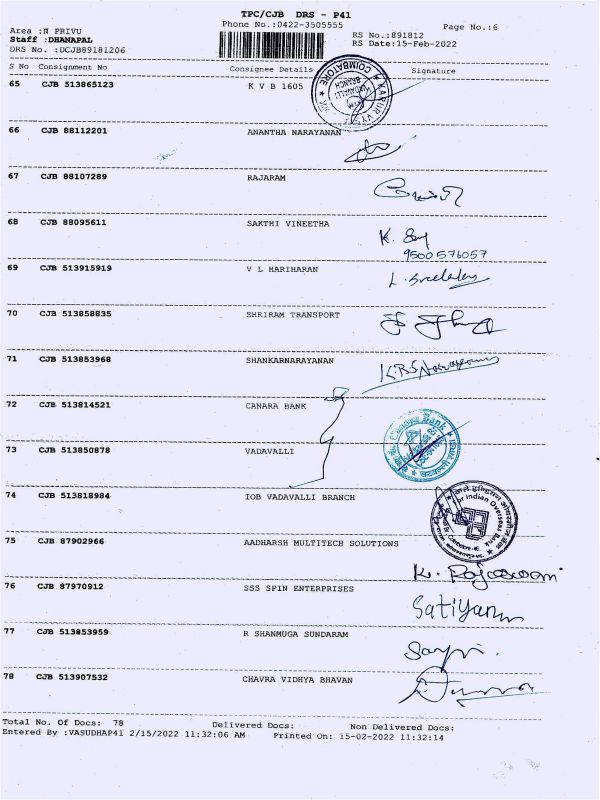 TPC/CJB DRS - P41
Area :N PRIVU
Phone No.:0422-3505555
Page No.:6
Staff :DHANAPAL
RS No.:891812
DRS No. :DCJB89181206
RS Date:15-Feb-2022
S No Consignment No Consignee Details Signature
65 CJB 513865123 K V B 1605
COIMBATORE
VADAVALLI
BRANCH
66 CJB 88112201 ANANTHA NARAYANAN
67 CJB 88107289 RAJARAM
68 CJB 88095611 SAKTHI VINEETHA
K.
9500576057
69 CJB 513915919 V L HARIHARAN
70 CJB 513858835 SHRIRAM TRANSPORT
71 CJB 513853968 SHANKARNARAYANAN
72 CJB 513814521 CANARA BANK
Canara Bank
73 CJB 513850878 VADAVALLI
74 CJB 513818984 IOB VADAVALLI BRANCH
For Indian Overseas Bank
75 CJB 87902966 AADHARSH MULTITECH SOLUTIONS
76 CJB 87970912 SSS SPIN ENTERPRISES
77 CJB 513853959 R SHANMUGA SUNDARAM
78 CJB 513907532 CHAVRA VIDHYA BHAVAN
Total No. Of Docs: 78 Delivered Docs: Non Delivered Docs:
Entered By :VASUDHAP41 2/15/2022 11:32:06 AM Printed On: 15-02-2022 11:32:14